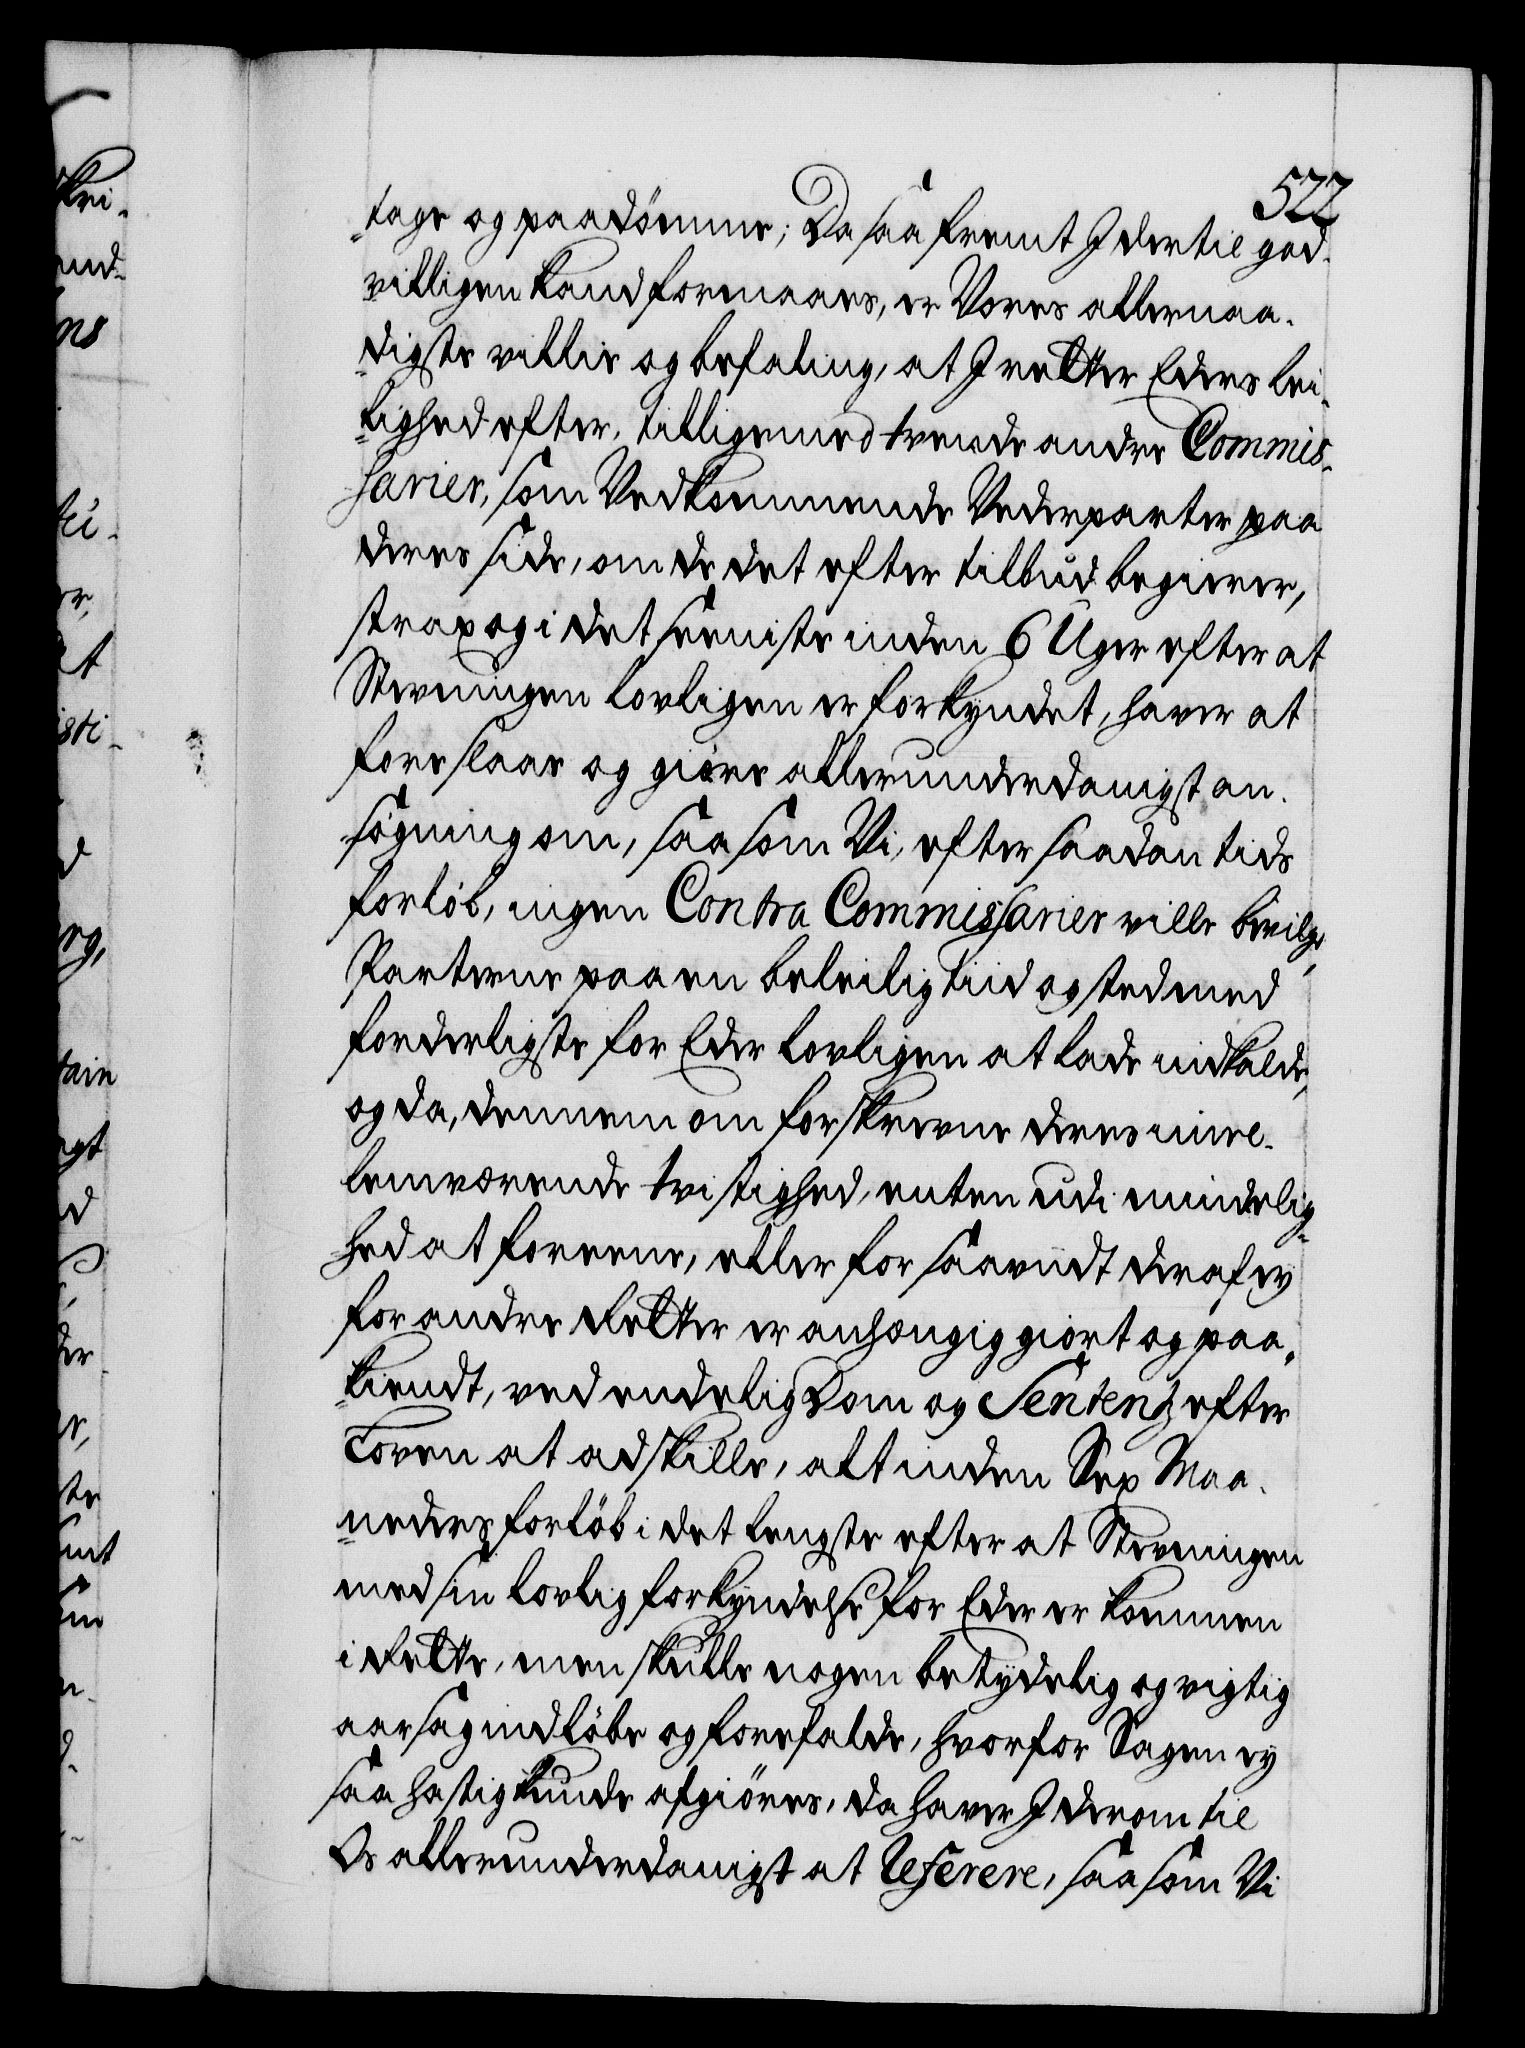 522
tage og paadömme; Da saa fremt I dertil god-
villigen kand formaaes, er Vores allernaa-
digste villie og befaling, at I retter Eders lei-
lighed efter, tilligemed tvende andre Commis-
sarier, som Vedkommende Vederparter paa
deres side, om de det efter tilbud begierer,
strax og i det seeniste inden 6 Uger efter at
Stevningen lovligen er forkyndet, haver at
foreslaae og giöre allerunderdanigst an-
sögning om, saasom Vi, efter saadan tids
forlöb, ingen Contra Commissarier ville bevilge,
Parterne paa en beleilig tiid og sted med
forderligste for Eder lovligen at lade indkalde,
og da, dennem om forskrevne deres imel-
lemværende tvistighed, enten udi mindelig-
hed at foreene, eller for saavidt deraf ey
for andre Retter er anhængiggiort og paa-
kiendt, ved endelig Dom og Sentenz efter
Loven at adskille, alt inden Sex Maa-
neders forlöb i det lengste efter at Stevningen
med sin lovlig forkyndelse for Eder er kommen
i Rette, men skulle nogen betydelig og vigtig
aarsag indlöbe og forefalde, hvorfor Sagen ey
saa hastig kunde afgiöres, da haver I derom til
Os allerunderdanigst at referere, saasom Vi